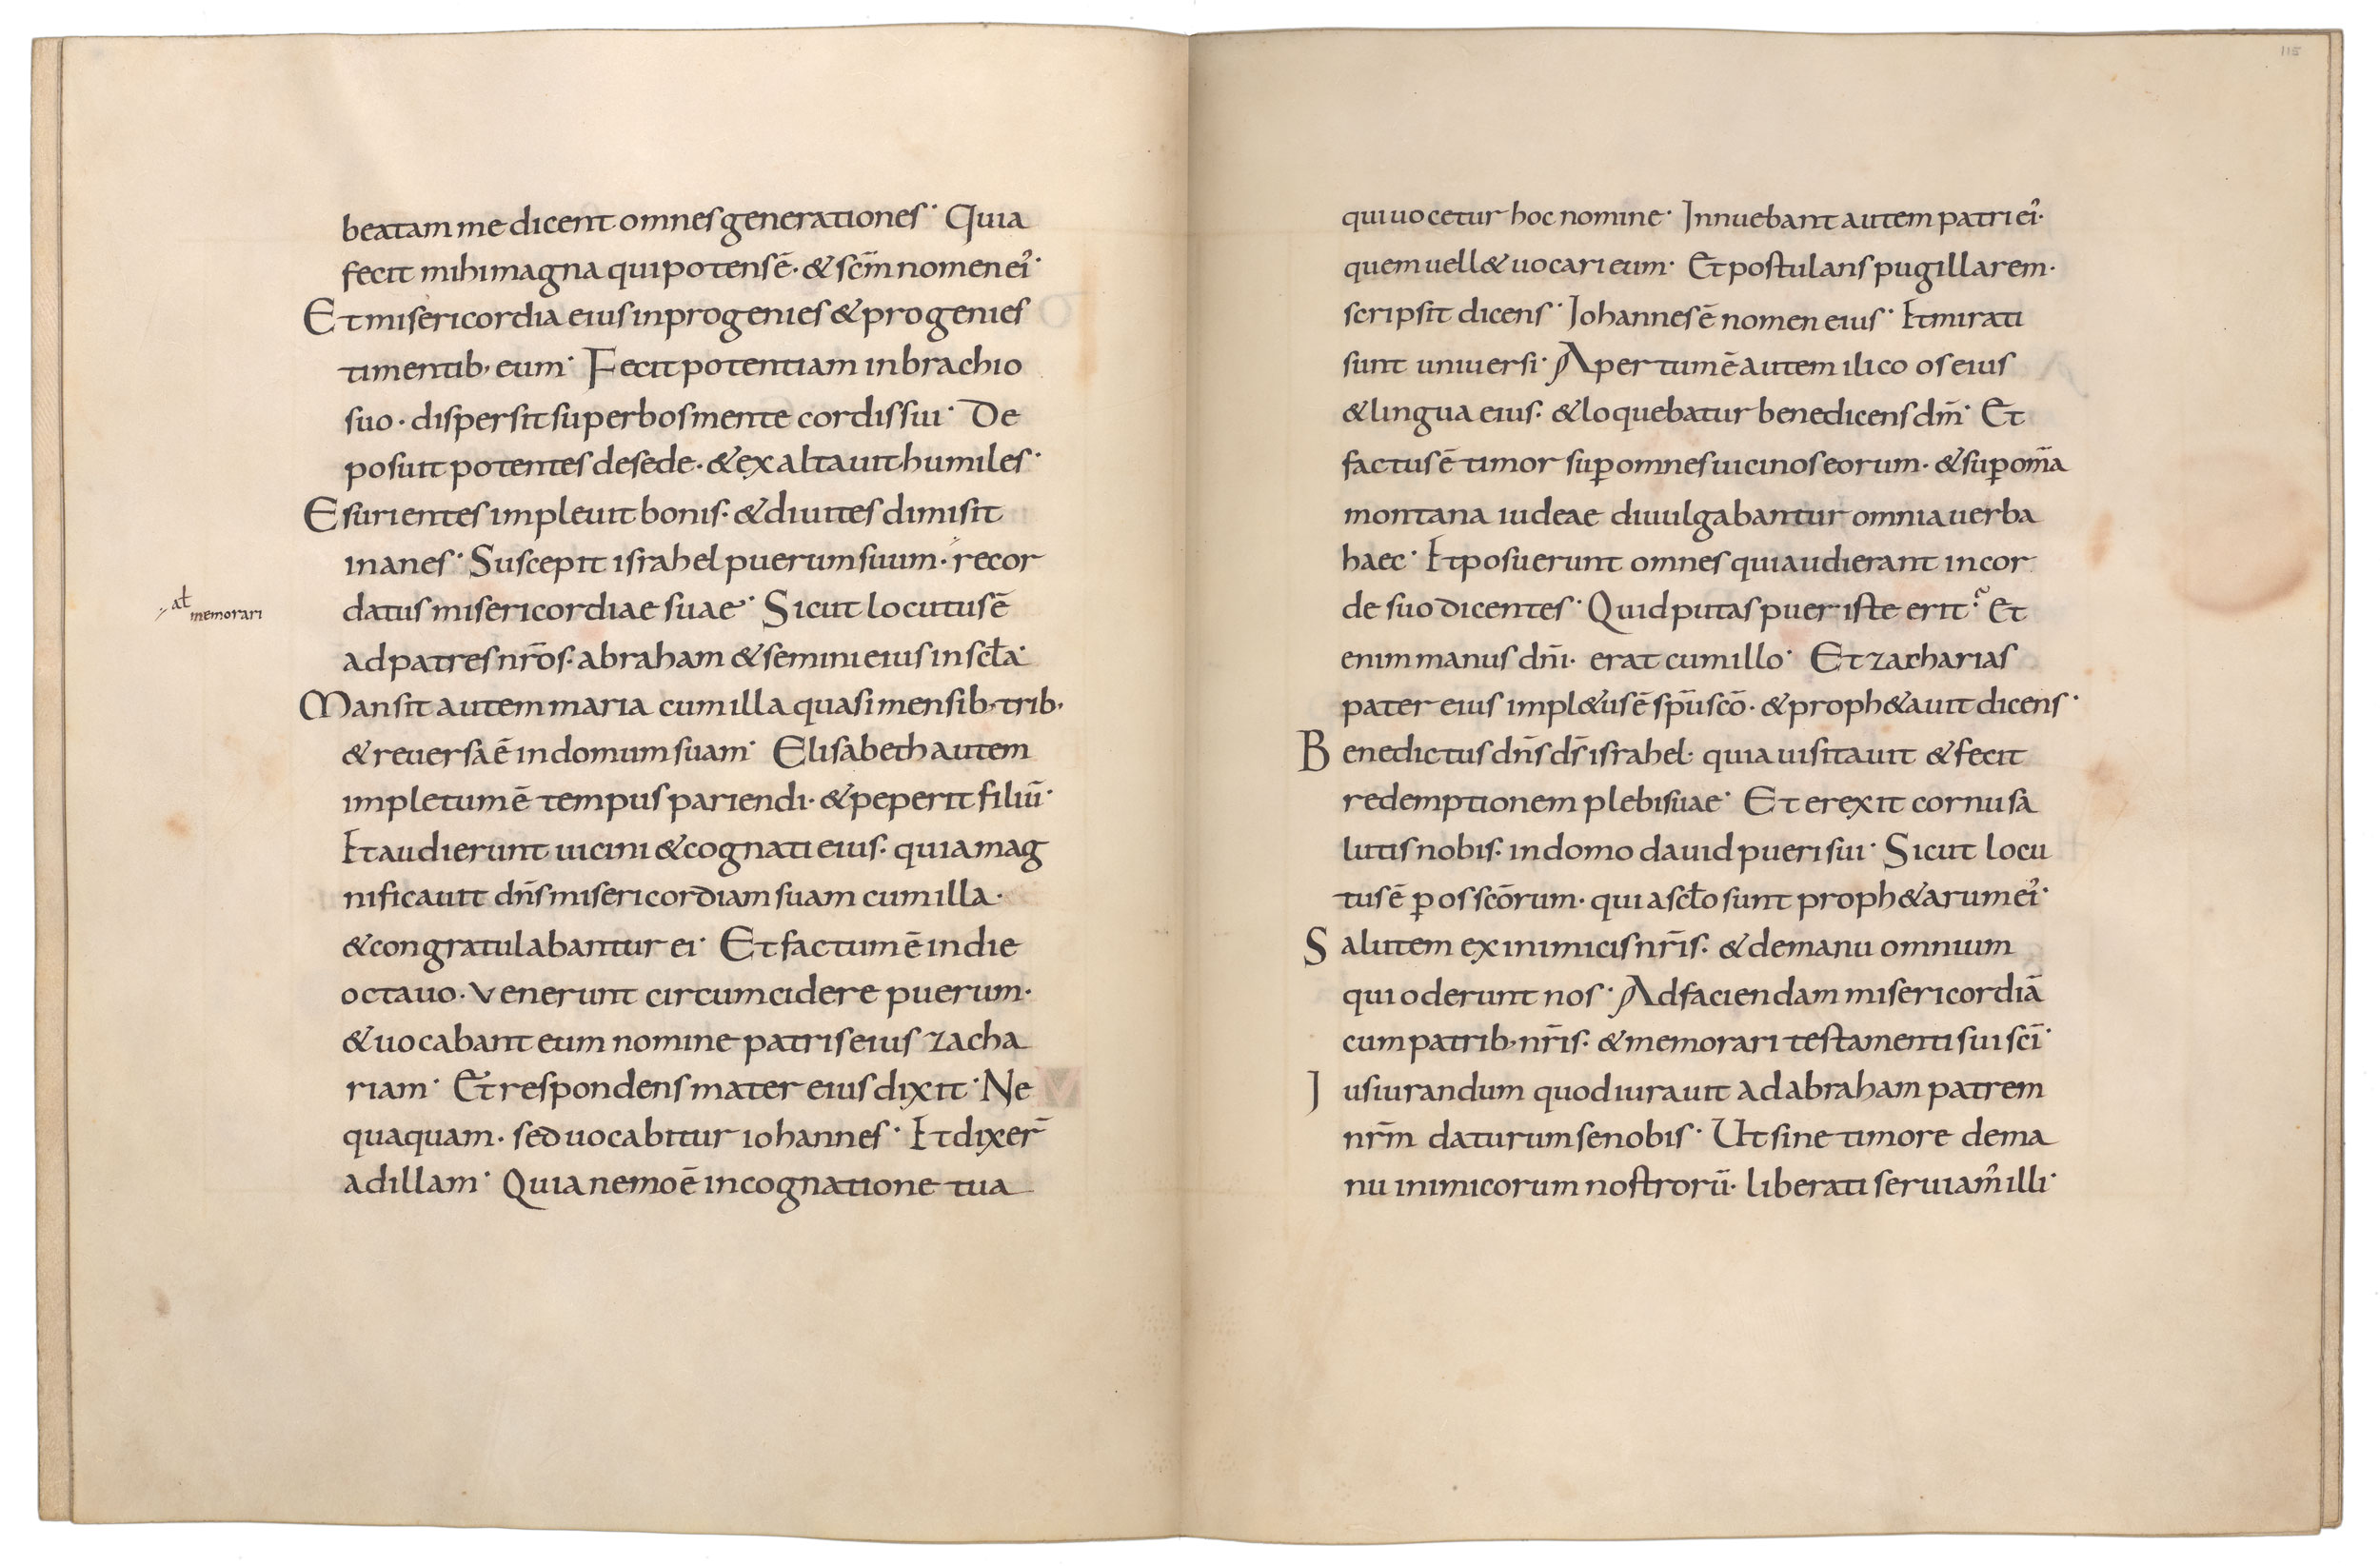 beatam me dicent omnes generationes· Quia
fecit mihi magna qui potens ē· & scm̄ nomen ei᾽·
Et misericordia eius in progenies & progenies
timentib; eum· Fecit potentiam in brachio
suo· dispersit superbos mente cordis sui· De
posuit potentes de sede· & exaltauit humiles·
Esurientes impleuit bonis· & diuites dimisit
inanes· Suscepit israhel puerum suum· recor
at memorari
datus misericordiae suae· Sicut locutus ē
ad patres nr̄os· abraham & semini eius in scła·
Mansit autem maria cum illa quasi mensib; trib;
& reuersa ē in domum suam· Elisabeth autem
impletum ē tempus pariendi· & peperit filiū·
Et audierunt uicini & cognati eius· quia mag
nificauit dn̄s misericordiam suam cum illa·
& congratulabantur ei· Et factum ē in die
octauo· venerunt circumcidere puerum·
& uocabant eum nomine patris eius zacha
riam· Et respondens mater eius dixit· Ne
quaquam· sed uocabitur iohannes· Et dixer̄
ad illam· Quia nemo ē in cognatione tua
115
qui uocetur hoc nomine· Innuebant autem patri ei᾽·
quem uell& uocari eum· Et postulans pugillarem·
scripsit dicens· Iohannes ē nomen eius· Et mirati
sunt uniuersi· Apertum ē autem ilico os eius
& lingua eius· & loquebatur benedicens dm̄· Et
factus ē timor suꝑ omnes uicinos eorum· & suꝑ om̄a
montana iudeae diuulgabantur omnia uerba
haec· Et posuerunt omnes qui audierant in cor
de suo dicentes· Quid putas puer iste erit? Et
enim manus dn̄i· erat cum illo· Et zacharias
pater eius impl&us ē sp̄u scō· & proph&auit dicens·
Benedictus dn̄s ds̄ israhel· quia uisitauit & fecit
redemptionem plebi suae· Et erexit cornu sa
lutis nobis· in domo dauid pueri sui· Sicut locu
tus ē ꝑ os scōrum· qui a scło sunt proph&arum ei᾽·
Salutem ex inimicis nr̄is· & de manu omnium
qui oderunt nos· Ad faciendam misericordiā
cum patrib; nr̄is· & memorari testamenti sui scī·
Iusiurandum quod iurauit ad abraham patrem
nr̄m daturum se nobis· Ut sine timore de ma
nu inimicorum nostrorū· liberati seruiam᾽ illi·